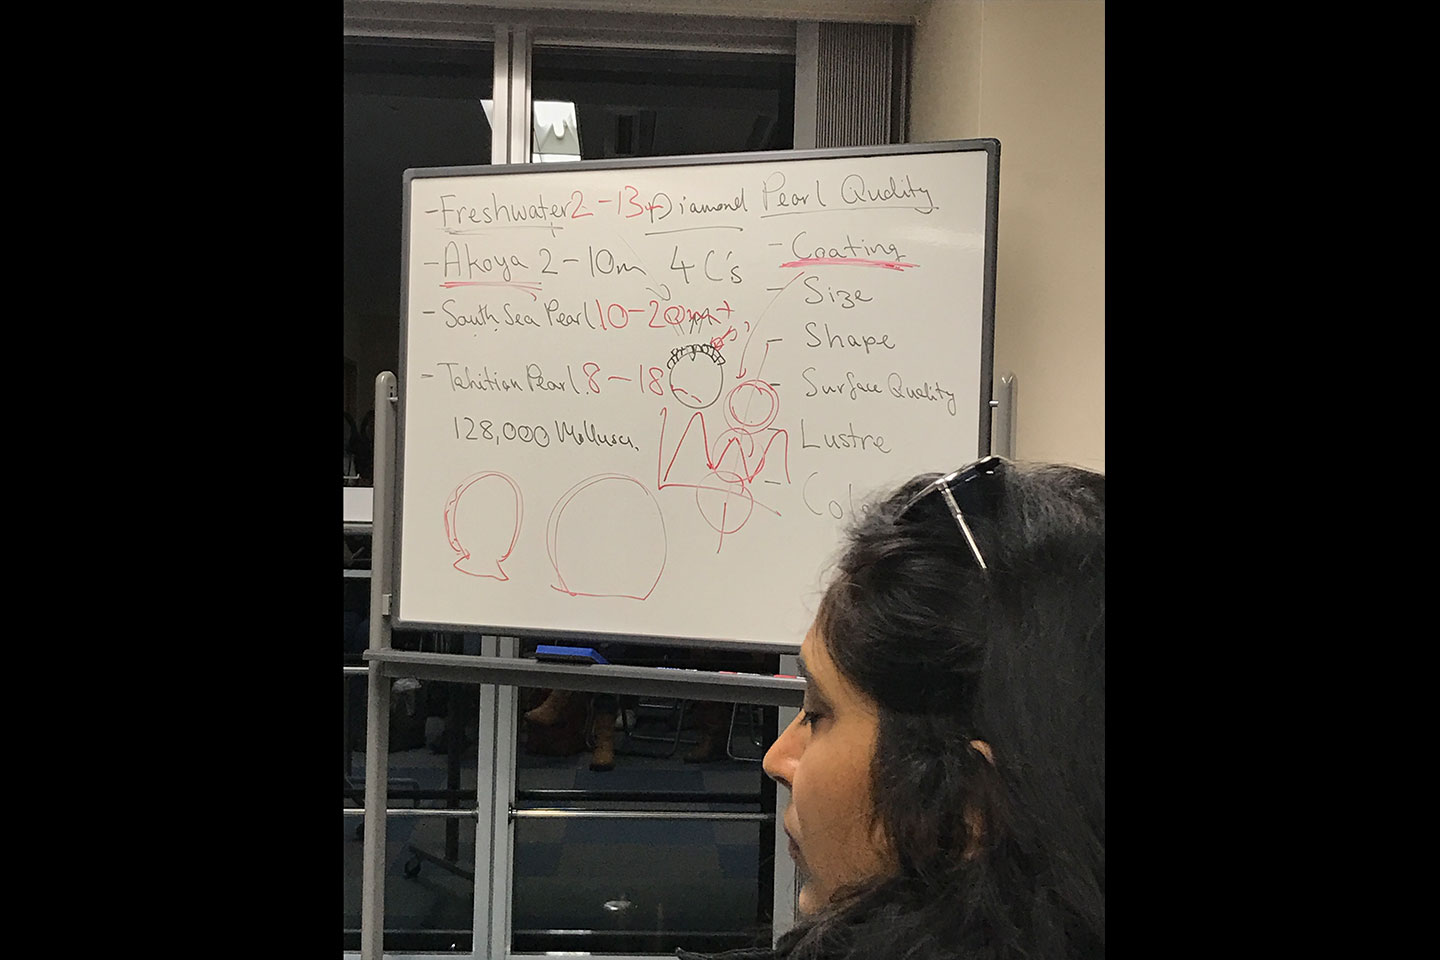 - Freshwater 2 - 13+
- Akoya 2 - 10m
- South Sea Pearl 10 - 20mm+
- Tahitian Pearl 8 - 18
128,000 Mollusc.
Diamond
4 C's
Pearl Quality
- Coating
- Size
- Shape
- Surface Quality
- Lustre
-